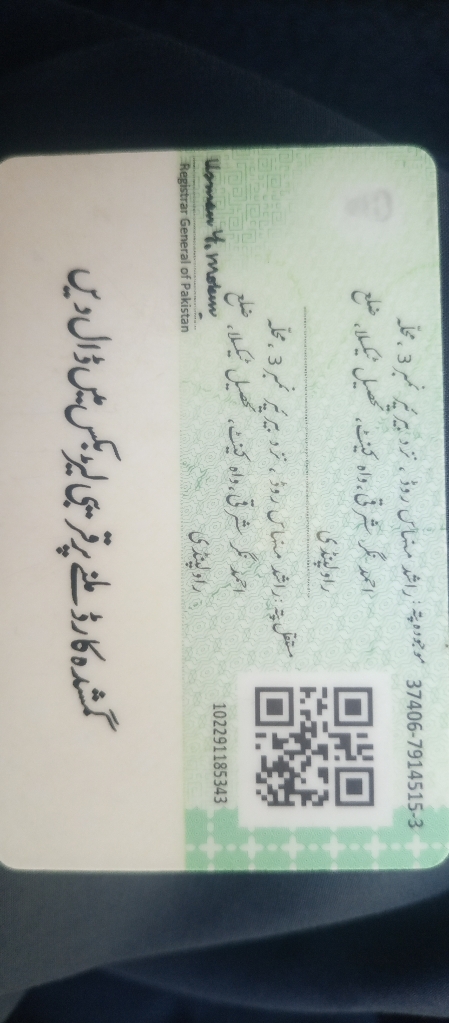 37406-7914515-3
موجودہ پتہ: راشد منہاس روڈ، نزد بیریئر نمبر 3، محلہ
احمد نگر شرقی، واہ کینٹ، تحصیل ٹیکسلا، ضلع
راولپنڈی
مستقل پتہ: راشد منہاس روڈ، نزد بیریئر نمبر 3، محلہ
احمد نگر شرقی، واہ کینٹ، تحصیل ٹیکسلا، ضلع
راولپنڈی
102291185343
Registrar General of Pakistan
گمشدہ کارڈ ملنے پر قریبی لیٹر بکس میں ڈال دیں